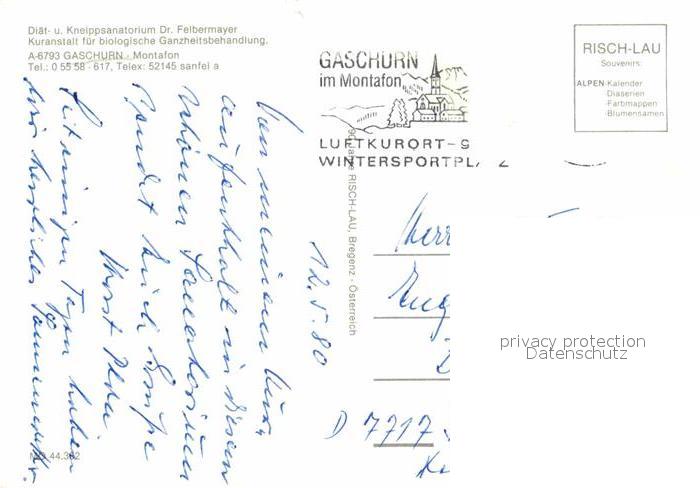 Diät- u. Kneippsanatorium Dr. Felbermayer
Kuranstalt für biologische Ganzheitsbehandlung,
A-6793 GASCHURN - Montafon
Tel.: 0 55 58 - 617, Telex: 52145 sanfel a
GASCHURN
im Montafon
LUFTKURORT-S
WINTERSPORTPL
RISCH-LAU
Souvenirs:
ALPEN-Kalender
Diaserien
-Farbmappen
-Blumensamen
RISCH-LAU, Bregenz - Österreich
12.5.80
Von meinem Kur-
aufenthalt in diesem
schönen Sanatorium
sendet Euch Grüße
Horst
Seit einigen Tagen haben
wir herrliches
Herr
Eug
D 7717
privacy protection
Datenschutz